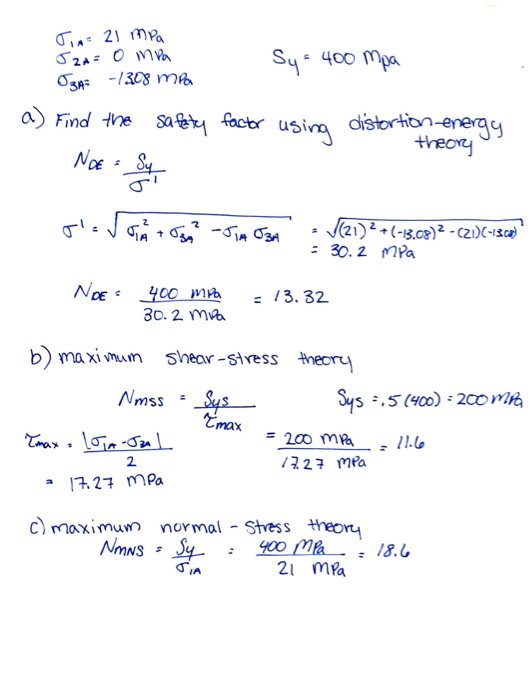 σ1A = 21 MPa
σ2A = 0 MPa
Sy = 400 Mpa
σ3A = -1308 MPa
a) Find the safety factor using distortion-energy
theory
NDE = Sy / σ'
σ' = √(σ1A² + σ3A² - σ1A σ3A) = √((21)² + (-13.08)² - (21)(-13.08))
= 30.2 MPa
NDE = 400 MPa / 30.2 MPa = 13.32
b) maximum shear-stress theory
Nmss = Sys / τmax
Sys = .5 (400) = 200 MPa
τmax = |σ1A - σ3A| / 2
= 200 MPa / 17.27 MPa = 11.6
= 17.27 MPa
c) maximum normal - stress theory
NMNS = Sy / σ1A = 400 MPa / 21 MPa = 18.6